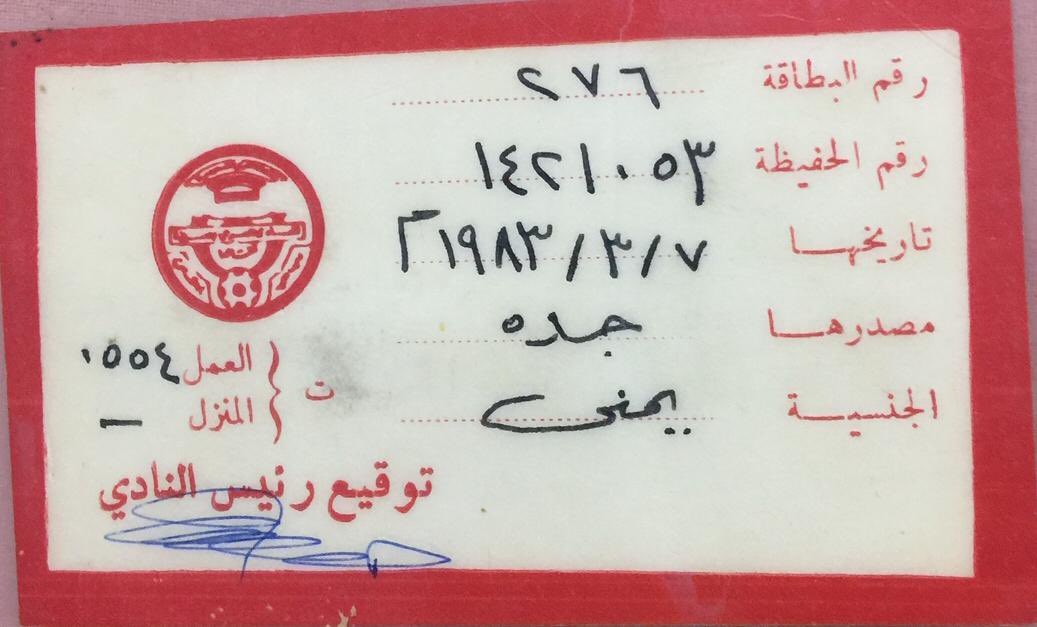 رقم البطاقة ٢٧٦
رقم الحفيظة ١٤٢١٠٥٣
تاريخها ٧/٣/١٩٨٣م
مصدرها جده
الجنسية يمنى
ت { العمل ٠٥٥٤
المنزل —
توقيع رئيس النادي